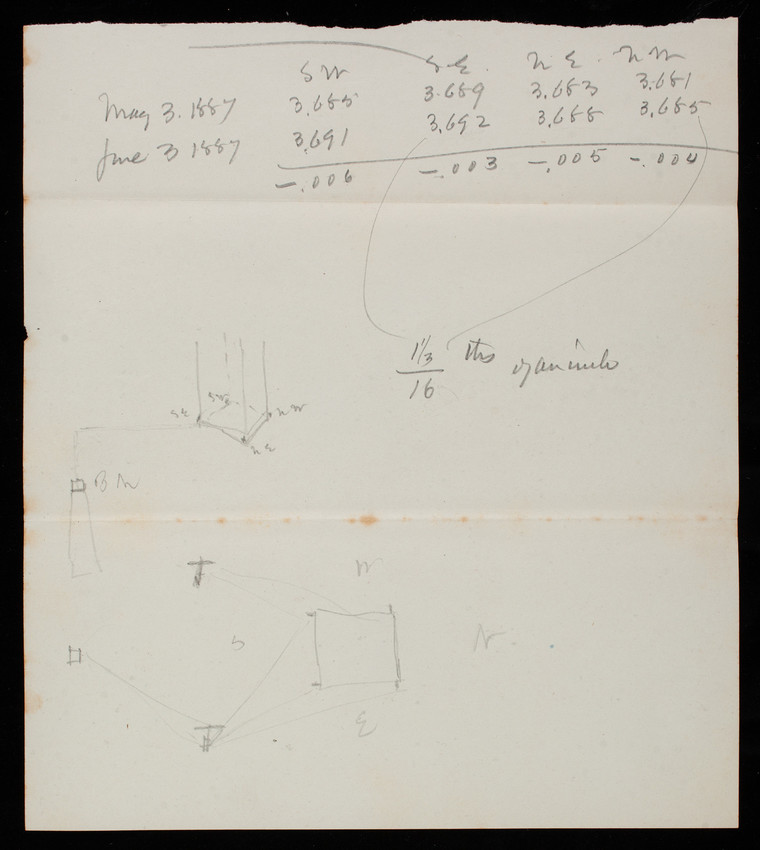 S W   S. E.   N. E.   N W
May 3. 1887   3.685   3.689   3.683   3.681
June 3 1887   3.691   3.692   3.688   3.685
-.006   -.003   -.005   -.004
1 1/3 ths of an inch
16
S W
S E   N W
N E
B M
W
S   N.
E